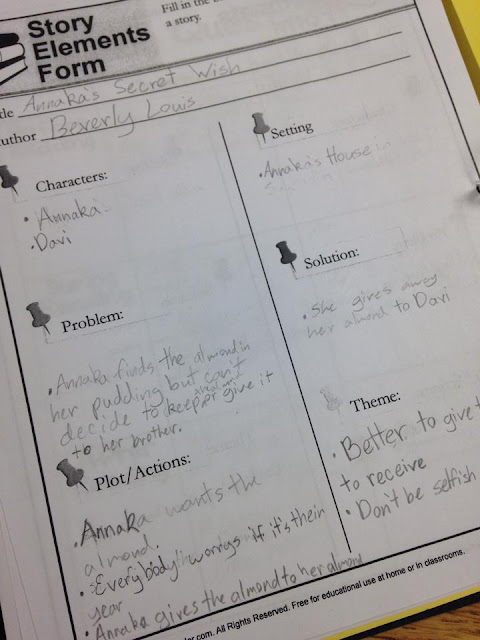 Story
Elements
Form
Fill in the
a story.
Annaka's Secret Wish
Beverly Louis
Characters:
• Annaka
• Davi
Setting
• Annaka's House in
Problem:
• Annaka finds the almond in
her pudding but can't
decide to keep or give it
to her brother.
Solution:
• She gives away
her almond to Davi
Plot/Actions:
• Annaka wants the
almond.
• Everybody worrys if it's thein
year
• Annaka gives the almond to her almond
Theme:
• Better to give t
to receive
• Don't be selfish
.com. All Rights Reserved. Free for educational use at home or in classrooms.